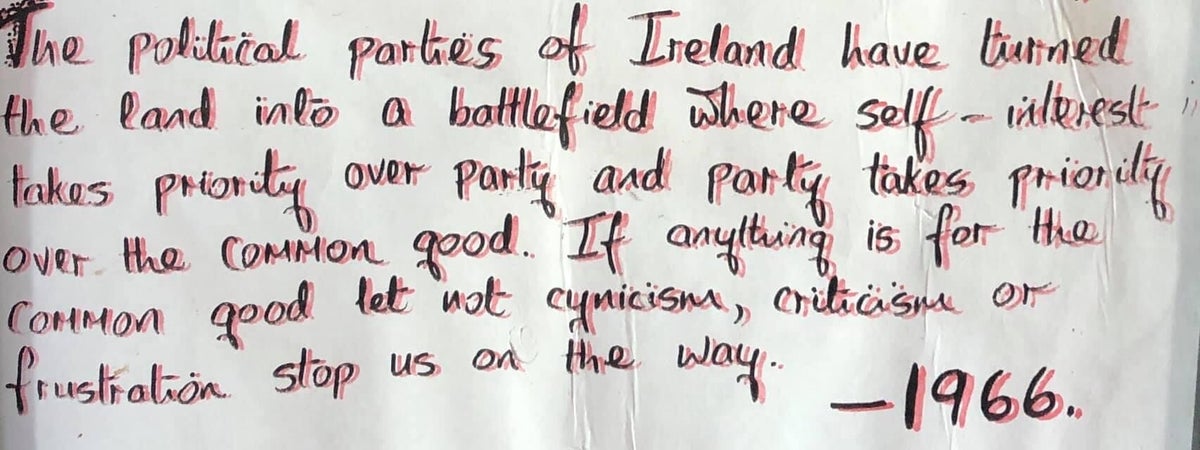 The political parties of Ireland have turned
the land into a battlefield where self-interest
takes priority over party and party takes priority
over the common good. If anything is for the
common good let not cynicism, criticism or
frustration stop us on the way.
—1966.